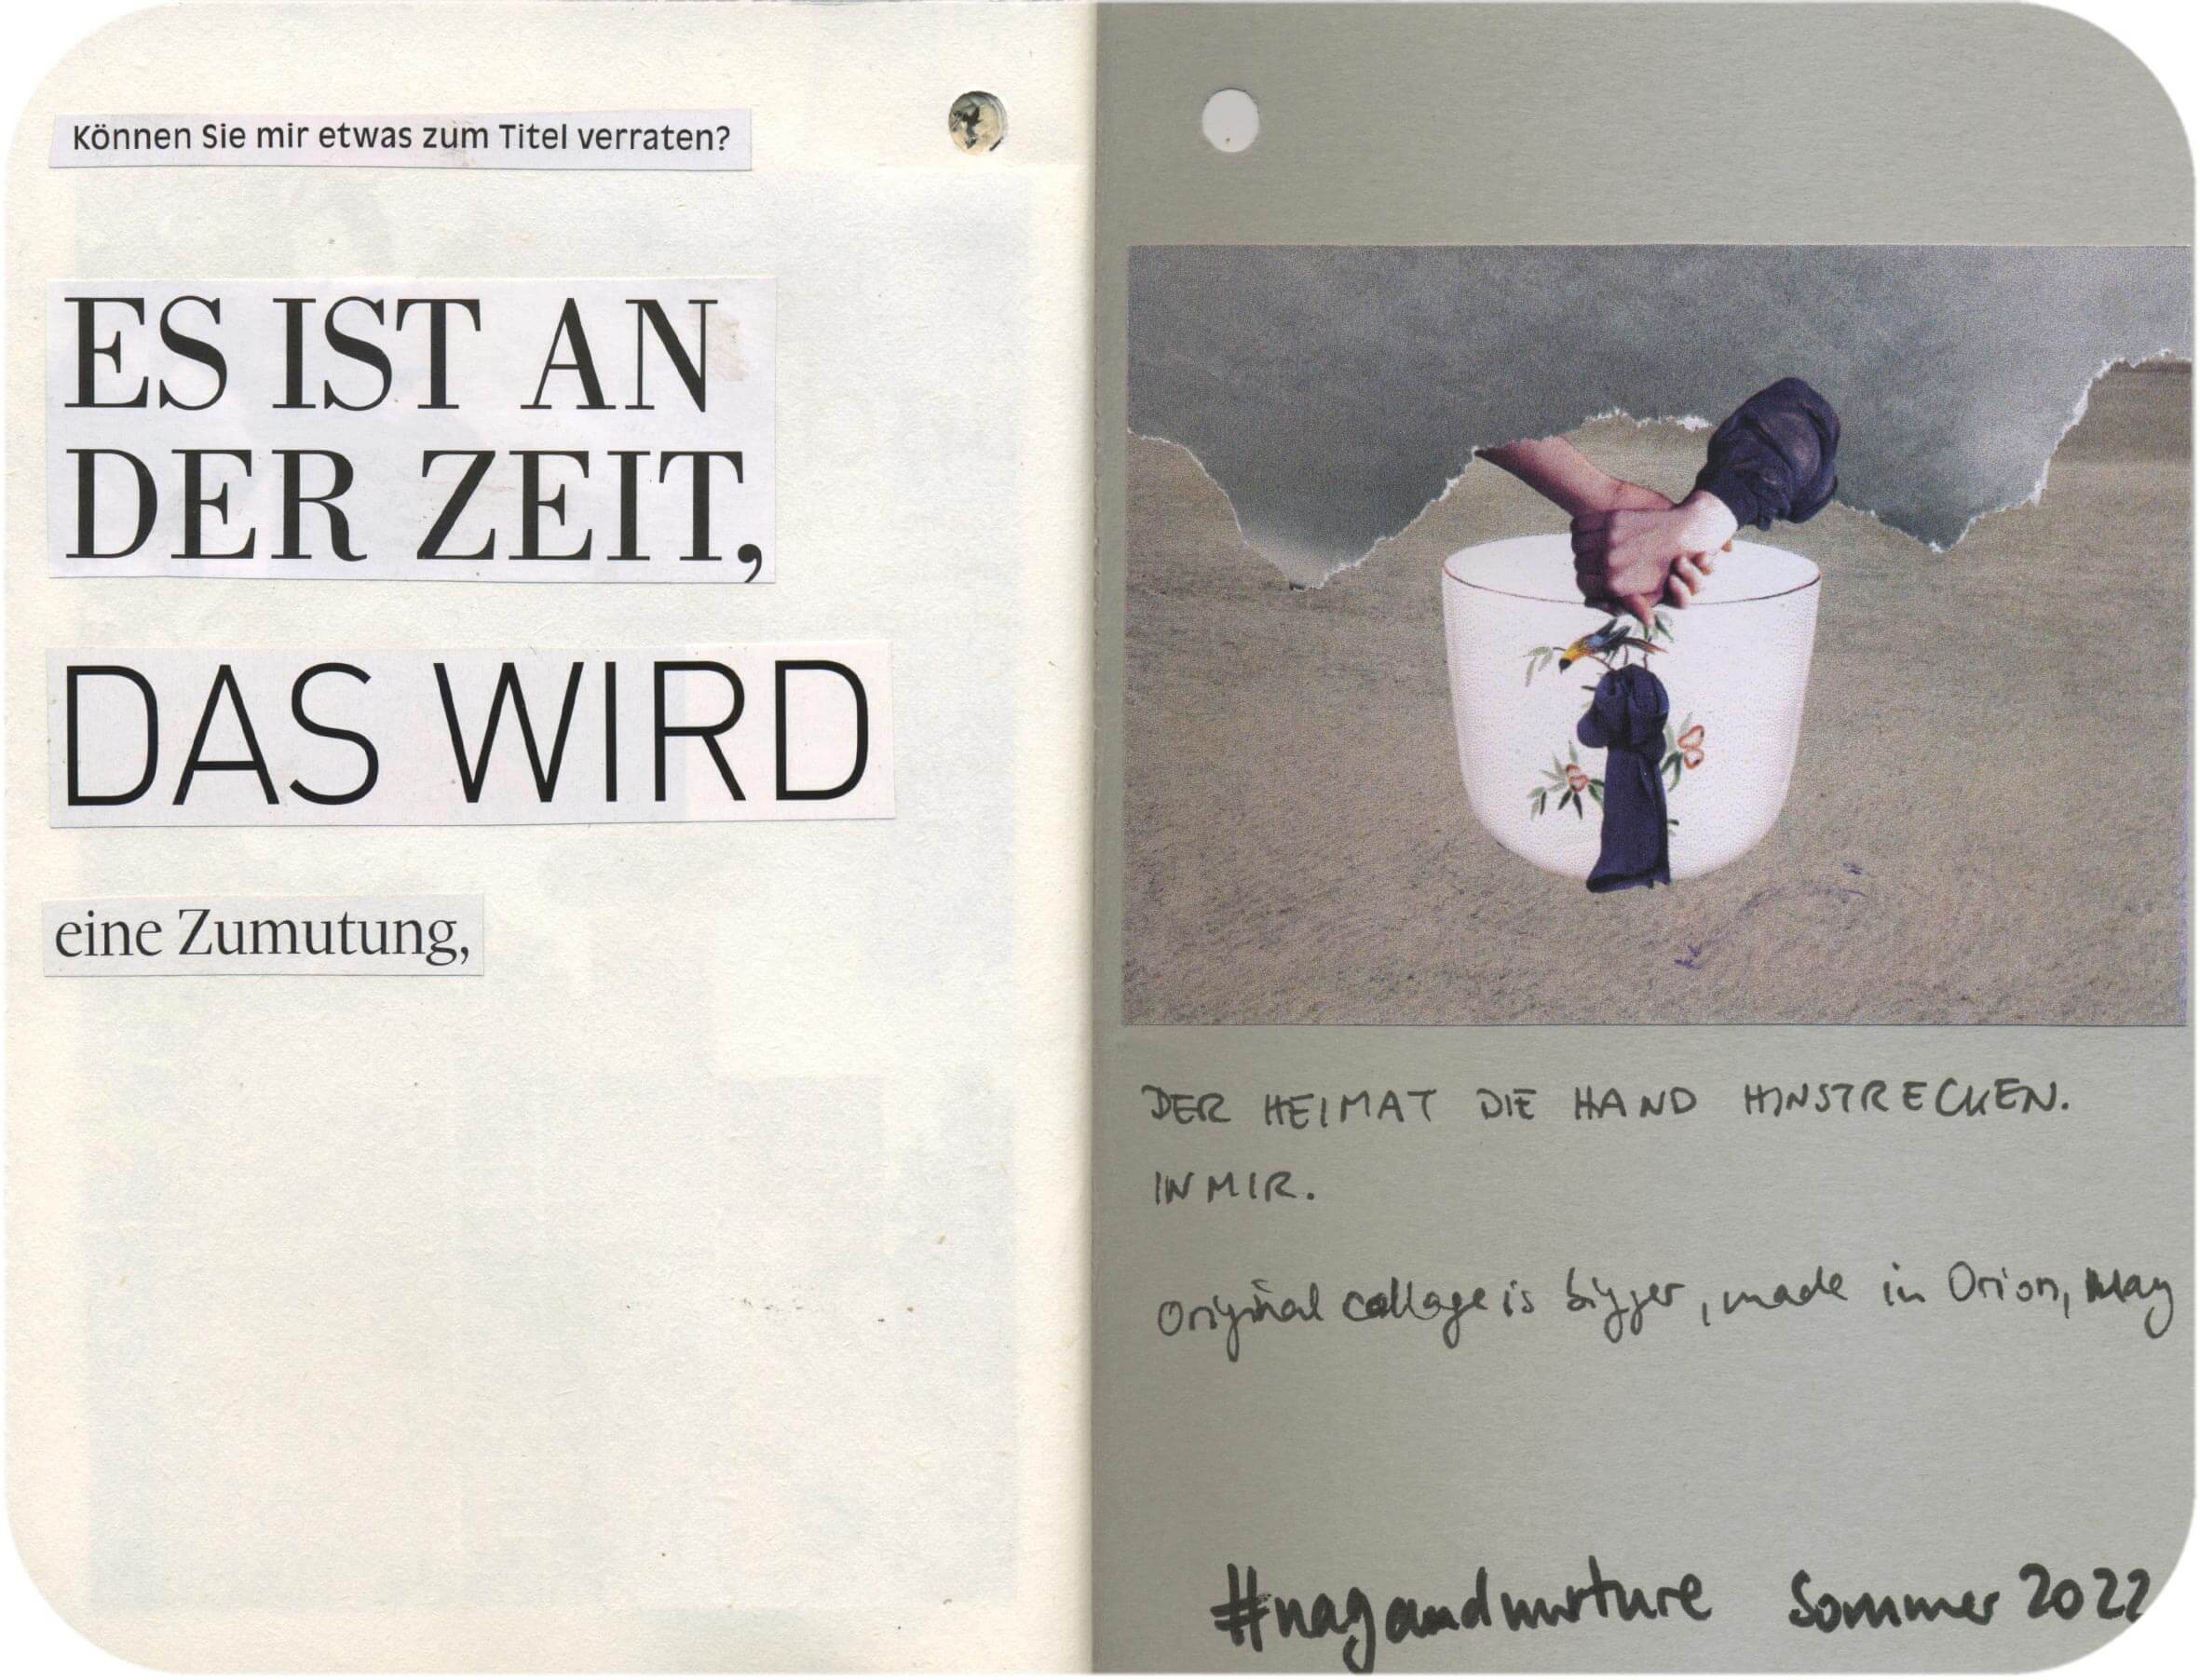 Können Sie mir etwas zum Titel verraten?
ES IST AN
DER ZEIT,
DAS WIRD
eine Zumutung,
DER HEIMAT DIE HAND HINSTRECKEN.
IN MIR.
Original collage is bigger, made in Orion, May
#nagandnurture Sommer 2022